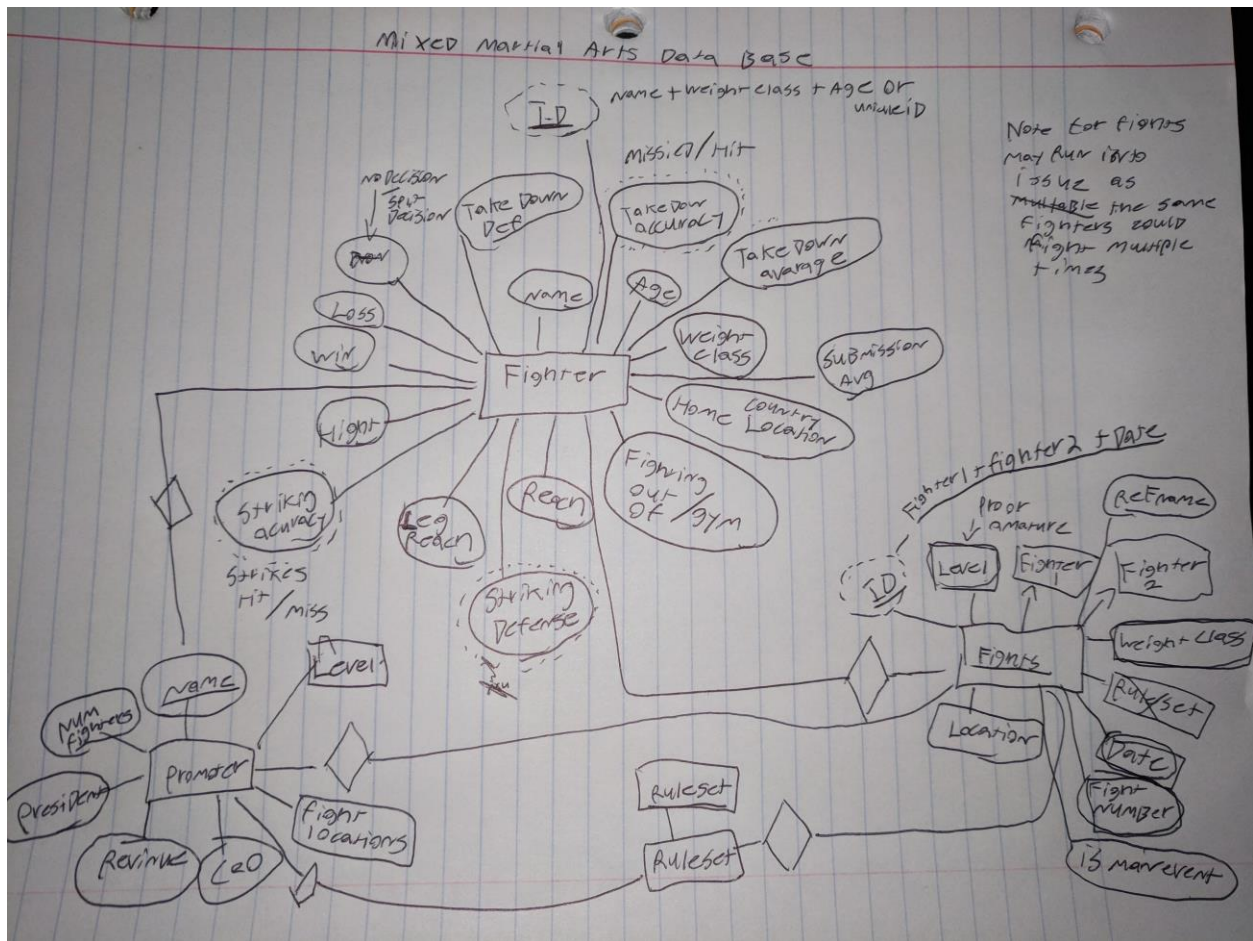 Mixed Martial Arts Data Base
I-D
Name + weight class + Age or
uniuqeiD
Note for fights
may Run into
issue as
multable the same
fighters could
fight multiple
times
Missied/Hit
no Decision
Split
Decision
Draw
Take Down
Def
Take Down
accuracy
Take Down
avarage
Name
Age
Loss
win
Weight
class
Submission
Avg
Fighter
Hight
Home country
Location
Striking
acuracy
Strikes
Hit/miss
Leg
Reach
Reach
Fighting
out
of/gym
Striking
Defense
Fighter1 + fighter2 + Date
Pro or
amature
Ref name
ID
Level
Fighter
1
Fighter
2
Fights
weight class
Rule/set
Location
Date
Fight
number
is main event
Level
Name
Num
fighters
Promoter
President
Revinue
CeO
fight
locations
Ruleset
Ruleset